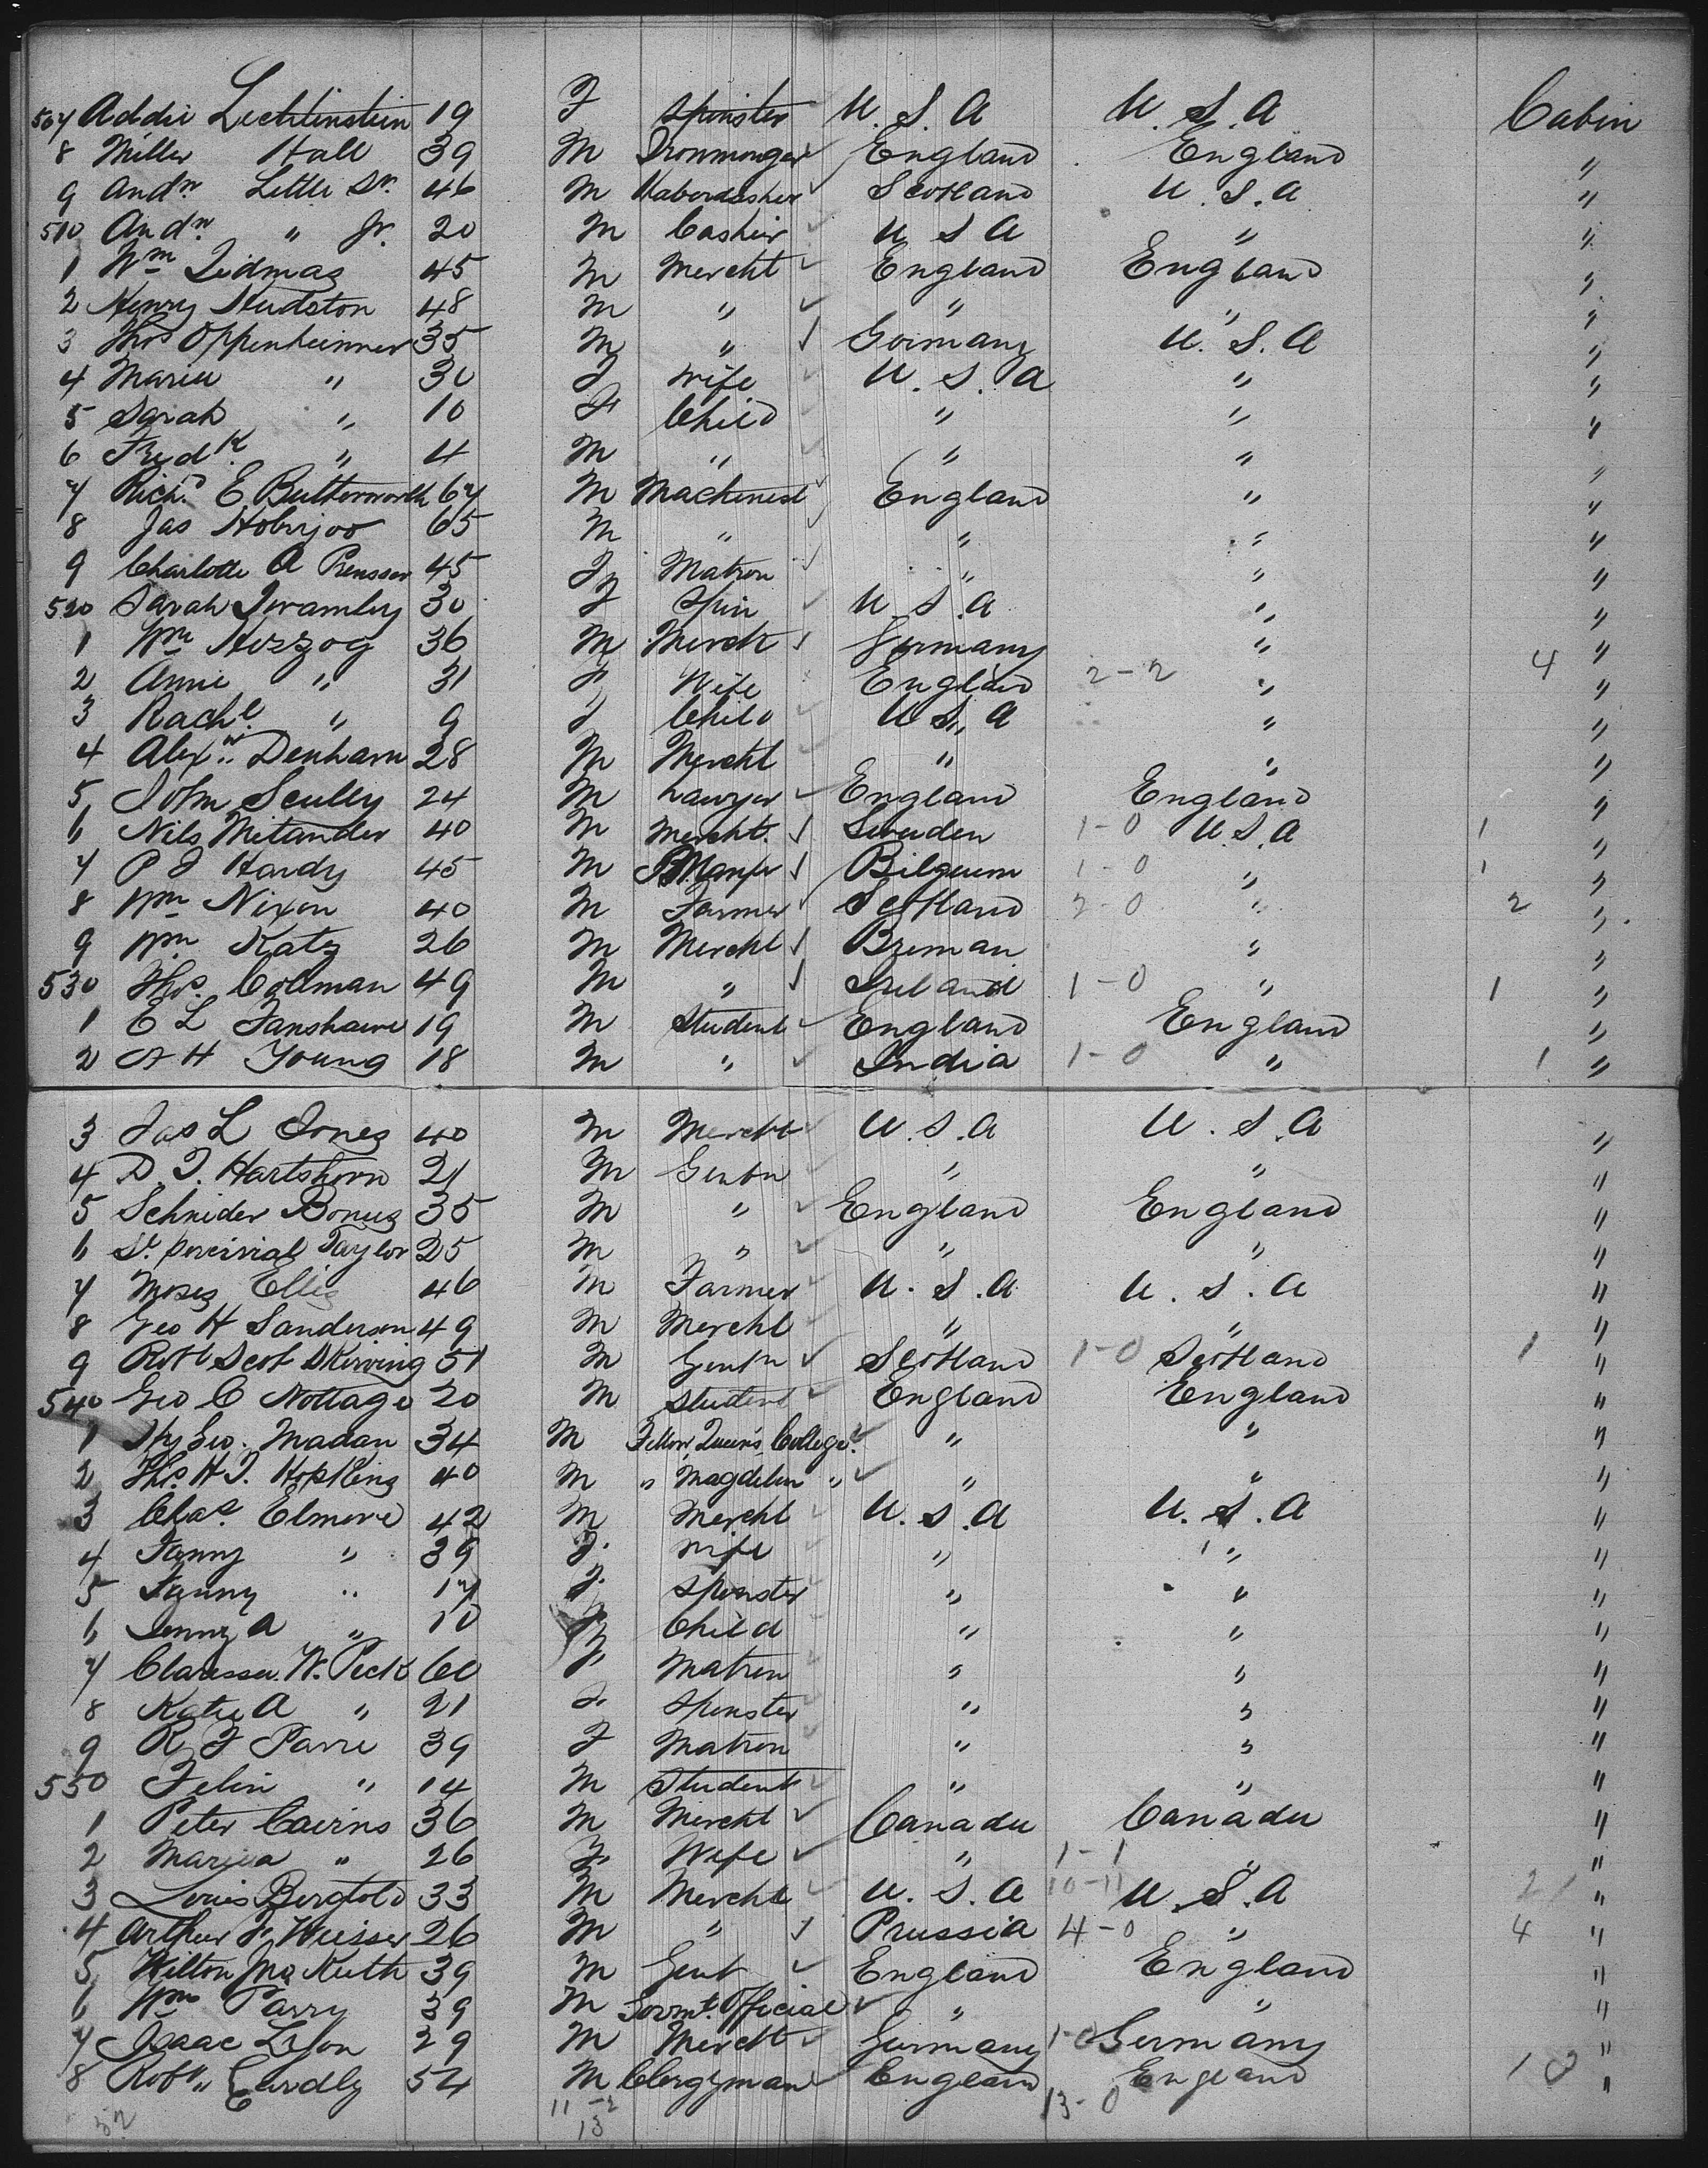 507 Addie Lechtinstein 19 F Spinster U.S.A U.S.A Cabin
8 Miller Hall 39 M Ironmonger England England "
9 Andw Little Sr. 46 M Haberdasher Scotland U.S.A "
510 Andw. " Jr. 20 M Cashier U S A " "
1 Wm Lidmas 45 M Mercht England England "
2 Henry Hudston 48 M " " " "
3 Thos Oppenheimer 35 M " Germany U.S.A "
4 Maria " 30 F Wife U.S.A " "
5 Sarah " 10 F Child " " "
6 Fredk. " 4 M " " " "
7 Richd E Butterworth 67 M Machinest England " "
8 Jas 65 M " " " "
9 Charlotte A 45 F Matron " " "
520 Sarah 30 F Spin U.S.A " "
1 Wm Herzog 36 M Mercht Germany " "
2 Annie " 31 F Wife England 2-2 " 4 "
3 Rachl. " 9 F Child U.S.A " "
4 Alexr. Denham 28 M Mercht " " "
5 John Scully 24 M Lawyer England England "
6 Nils Mitander 40 M Mercht. Sweden 1-0 U.S.A 1 "
7 P J Hardy 45 M Bilguim 1-0 " 1 "
8 Wm Nixon 40 M Farmer Scotland 2-0 " 2 "
9 Wm Katz 26 M Mercht Breman " "
530 Thos. Collman 49 M " Ireland 1-0 " 1 "
1 E L Fanshawe 19 M Student England England "
2 A H Young 18 M " India 1-0 " 1 "
3 Jas L Jones 40 M Mercht U.S.A U.S.A "
4 D. T. Hartshorn 21 M Gentn " " "
5 Schnider Bonus 35 M " England England "
6 St. Percivial Taylor 25 M " " " "
7 Moses Ellis 46 M Farmer U.S.A U.S.A "
8 Geo H Sanderson 49 M Mercht " " "
9 Robt Scot Skirving 51 M Gentn Scotland 1-0 Scotland 1 "
540 Geo C Nottage 20 M Student England England "
1 Hy Geo. Madan 34 M Fellow Queen's College " " "
2 Thos. H. T. Hopkins 40 M " Magdelen " " " "
3 Chas. Elmore 42 M Mercht U.S.A U.S.A "
4 Fanny " 39 F. Wife " " "
5 Fanny " 17 F. Spinster " " "
6 Jenny A " 10 F Child " " "
7 Clarissa W. Peck 60 F Matron " " "
8 Katie A " 21 F. Spinster " " "
9 R F Parre 39 F Matron " " "
550 Felin " 14 M Student " " "
1 Peter Cairns 36 M Mercht Canada Canada "
2 " 26 F. Wife " 1-1 " "
3 Louis Bergtold 33 M Mercht U.S.A 10-11 U.S.A 21 "
4 Arthur F. Weisser 26 M " Prussia 4-0 " 4 "
5 Hilton Jno Keith 39 M Gent England England "
6 Wm Parry 39 M Govmt. Official " " "
7 Isaac Leon 29 M Mercht Germany 1-0 Germany "
8 Robt " Eardly 54 M Clergyman England England 10 "
52 11-2 13-0
13